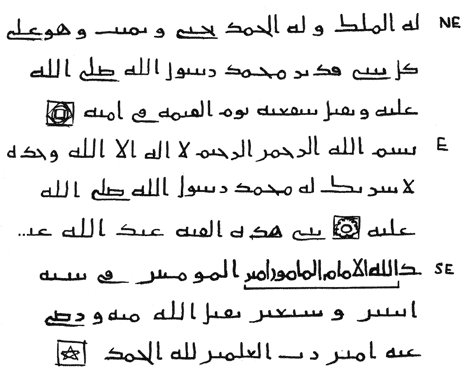 له الملك و له الحمد يحيى و يميت و هو على NE
كل شى قدير محمد رسول الله صلى الله
عليه و يقبل شفعته يوم القيمه فى امته
بسم الله الرحمن الرحيم لا اله الا الله وحده E
لا شريك له محمد رسول الله صلى الله
عليه بنى هذه القبه عبد الله عبـ...
ـد الله الامام المامون امير المومنين فى سنه SE
اثنين و سبعين يقبل الله منه و رضى
عنه امين رب العلمين لله الحمد